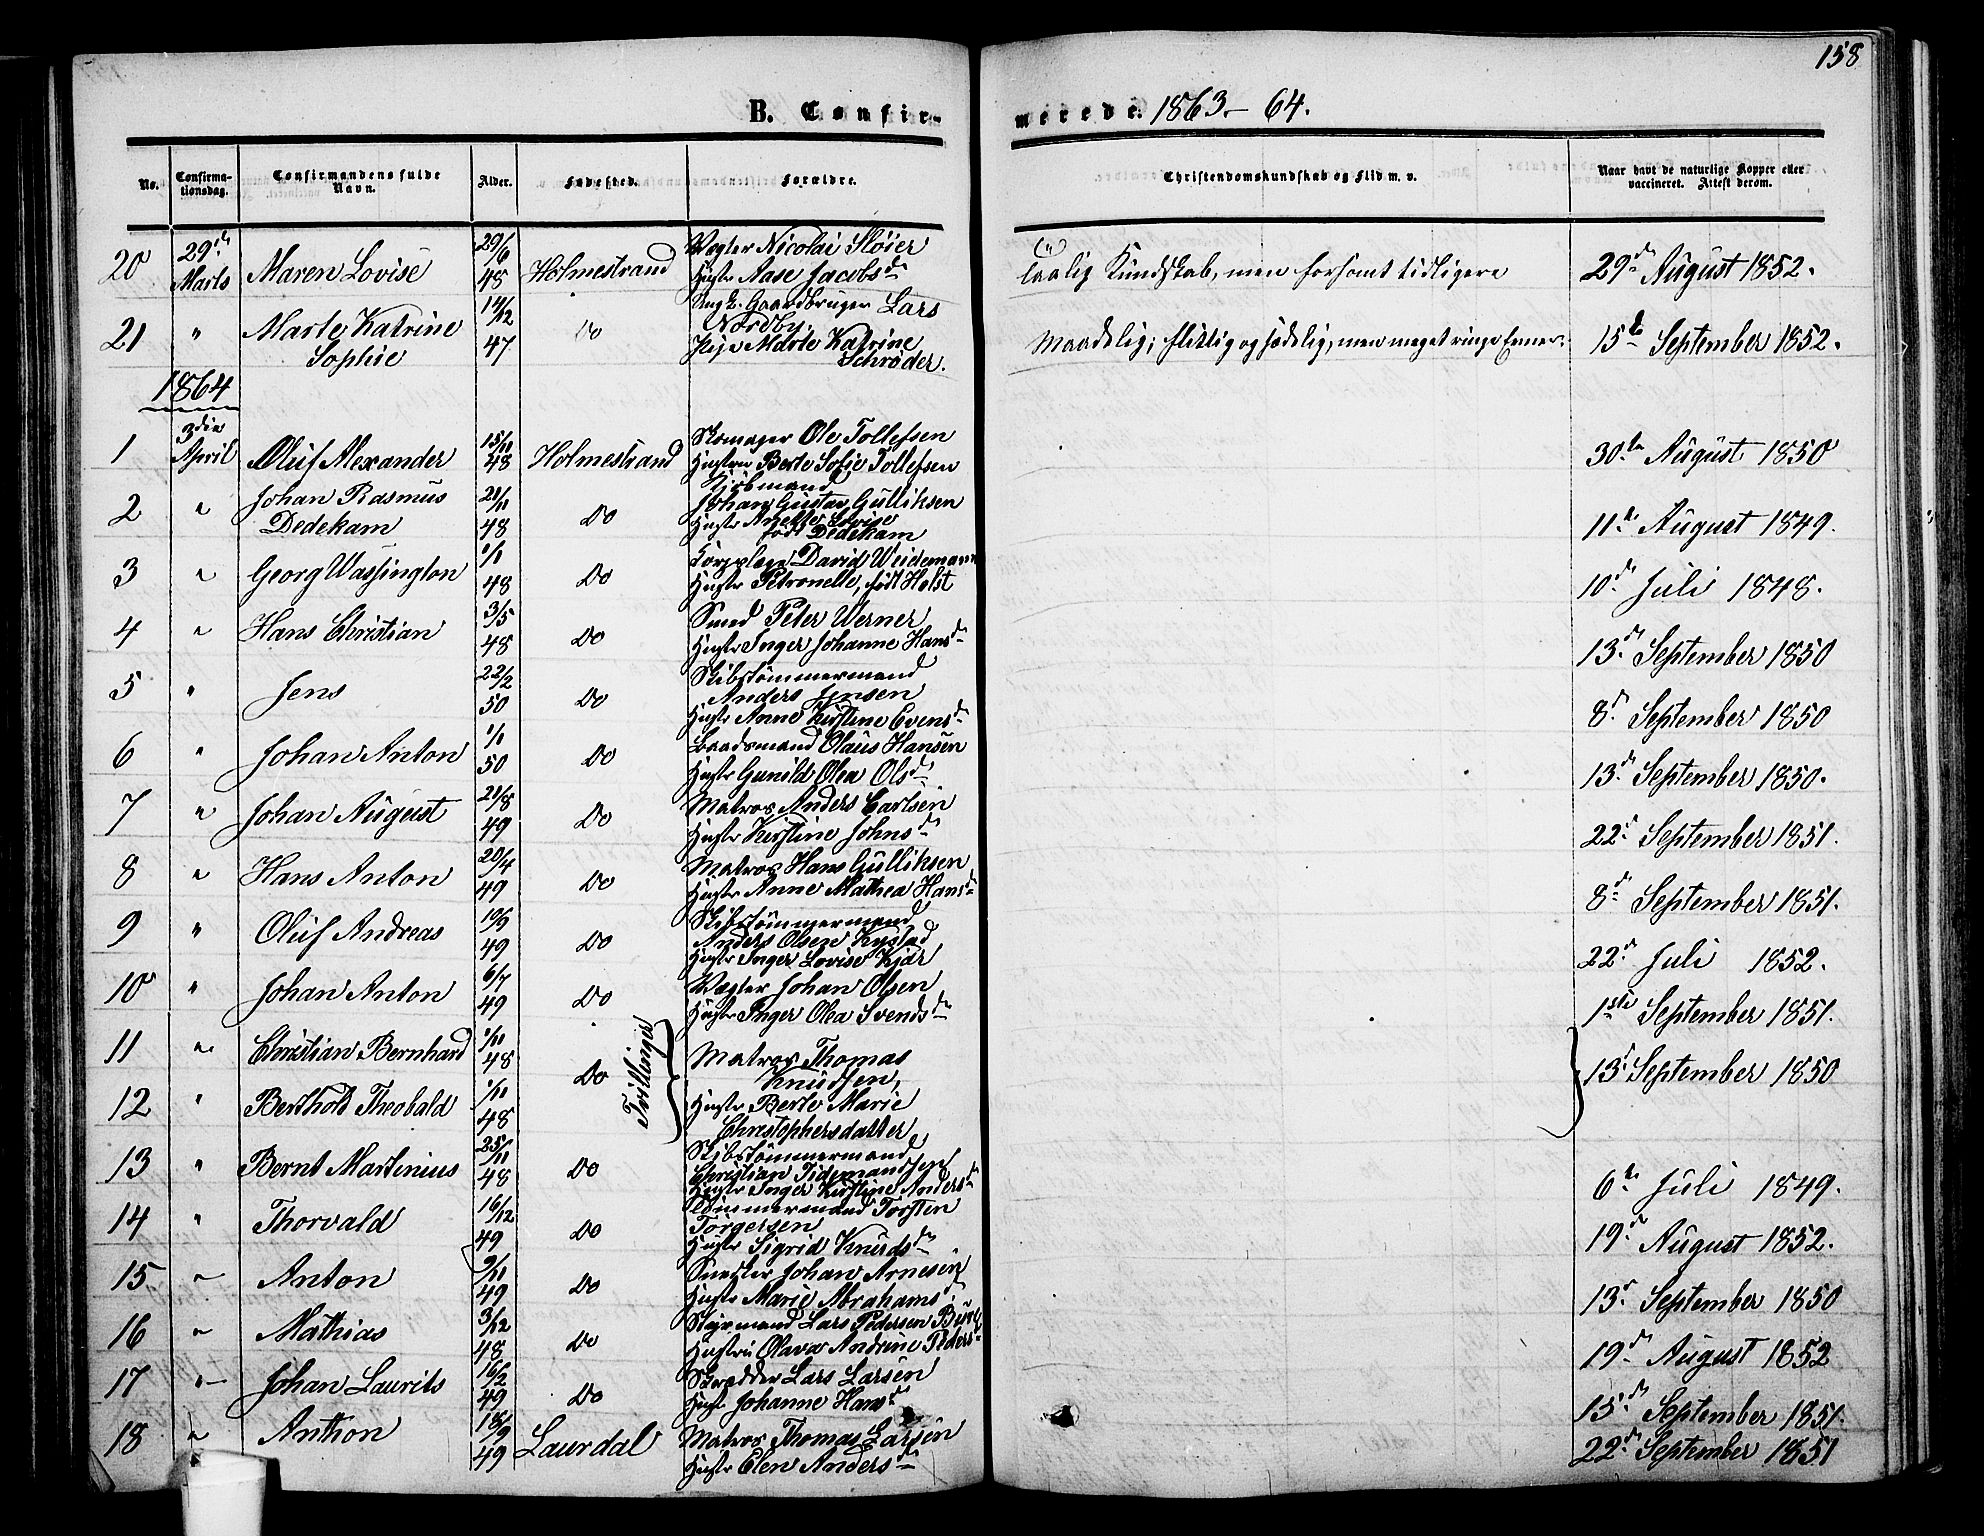 158
B. Confir- merede. 1863-64.
No. Confirma-tionsdag. Confirmandens fulde Navn. Alder. Fødested. Forældre. Christendomskundskab og Flid m. v. Naar havt de naturlige Kopper eller vaccineret. Attest derom.
20 29de Marts Maren Lovise 29/6 48 Holmestrand Vægter Nicolai Høier
Hustr Aase Jacobsdr Taalig Kundskab, men forsømt tidligere 29de August 1852.
21 " Marte Katrine Sophie 14/12 47 Do Ungk. Gaardbruger Lars Nordby.
Pige Marte Katrine Schrøder. Maadelig; flittig og sædelig, men meget ringe Evner. 15de September 1852.
1864
1 3die April Oluf Alexander 15/11 48 Holmestrand Skomager Ole Tollefsen
Hustru Berte Sofie Tollefsen 30te August 1850
2 " Johan Rasmus Dedekam 21/11 48 Do Kjøbmand
Johan Gustav Gulliksen
Hustr Anette Lovise
født Dedekam 11te August 1849.
3 " Georg Wassington 1/1 48 Do David Weidemann
Hustr Petronelle, født Holst 10de Juli 1848.
4 " Hans Christian 3/5 48 Do Smed Peter Werner
Hustr Inger Johanne Hansdr 13de September 1850
5 " Jens 22/2 50 Do Skibstømmermand
Anders Jensen
Hustr Anne Kirstine Evensdr 8de September 1850
6 " Johan Anton 1/1 50 Do Baadsmand Olaus Hansen
Hustr Gunild Olea Olsdr 13de September 1850.
7 " Johan August 21/8 49 Do Matros Anders Carlsen
Hustr Kirstine Johnsdr 22de September 1851.
8 " Hans Anton 20/4 49 Do Matros Hans Gulliksen
Hustr Anne Mathea Hansdr 8de September 1851.
9 " Oluf Andreas 10/9 49 Do Skibstømmermand
Anders Olsen
Hustr Inger Lovise Kjær 22de Juli 1852.
10 " Johan Anton 6/7 49 Do Vægter Johan Olsen
Hustr Inger Olea Svendsdr 1ste September 1851.
11 " Christian Bernhard 1/11 48 Do Tvillinger Matros Thomas
Knudsen, 13de September 1850
12 " Berthold Theobald 1/11 48 Hustr Berte Marie
Christophersdatter
13 " Bernt Martinius 25/11 48 Do Skibstømmermand
Christian Tidemandsen
Hustr Inger Kirstine Andersdr 6te Juli 1849.
14 " Thorvald 16/12 49 Do Tømmermand Torsten
Torgersen
Hustr Sigrid Knudsdr 19de August 1852.
15 " Anton 9/11 49 Do Snedker Johan Arnesen
Hustr Marie Abrahamsdr 13de September 1850
16 " Mathias 3/12 48 Do Styrmand Lars Pedersen
Hustru Olava Andrine Pedersdr 19de August 1852
17 " Johan Laurits 16/2 49 Do Skredder Lars Larsen
Hustr Johanne Hansdr 15de September 1851.
18 " Anthon 18/9 49 Laurdal Matros Thomas Larsen
Hustr Elen Andersdr 22de September 1851